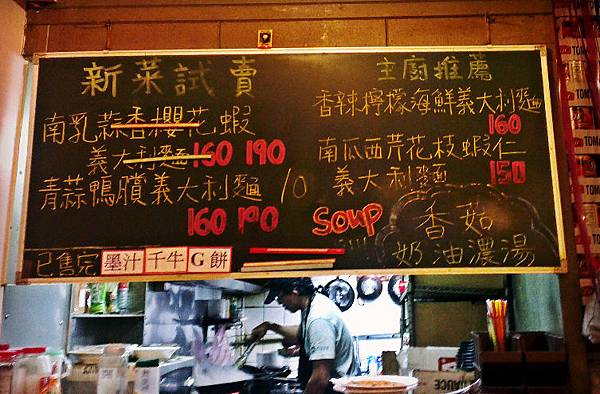 新菜試賣
南乳蒜香櫻花蝦
義大利麵 160 190
青蒜鴨臏義大利麵 10
160 190
已售完 墨汁 千牛 G餅
主廚推薦
香辣檸檬海鮮義大利麵
160
南瓜西芹花枝蝦仁
義大利麵 150
Soup
香菇
奶油濃湯